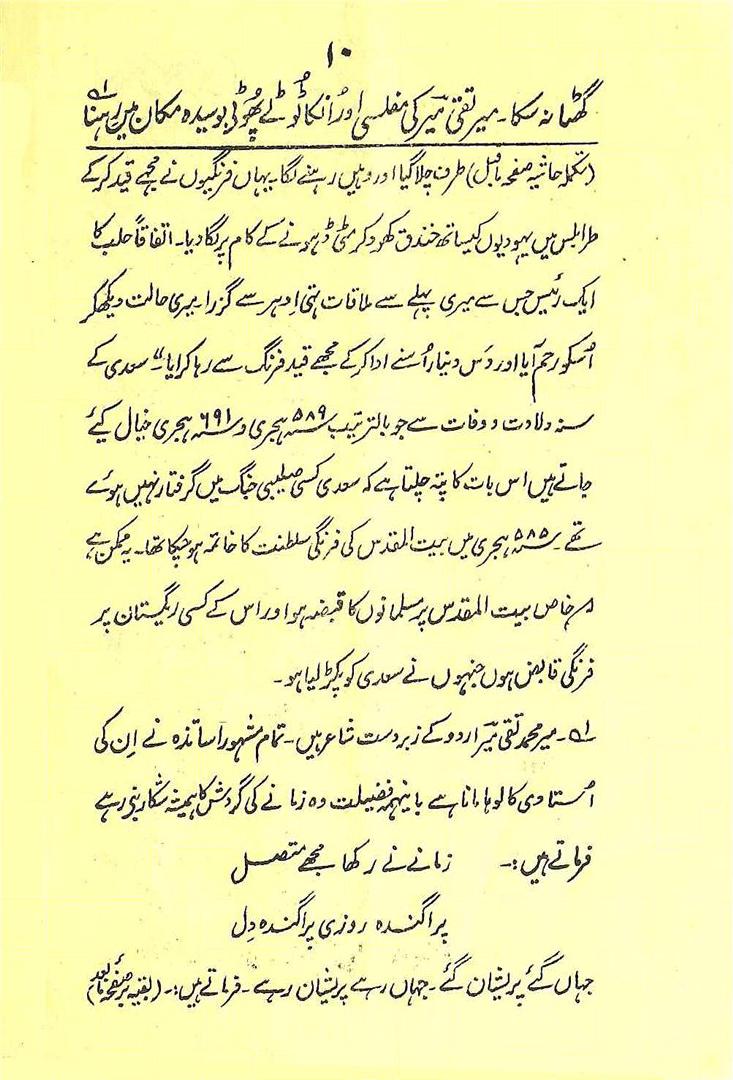 ۱۰
گھٹا نہ سکا۔ میر تقی میرؔ کی مفلسی اور اُنکا ٹوٹے پُھوٹے بوسیدہ مکان میں رہنا ۱؎
(تکملہ حاشیہ صفحہ ماقبل) طرف چلا گیا اور وہیں رہنے لگا۔ یہاں فرنگیوں نے مجھے قید کر کے
طرابلس میں یہودیوں کیساتھ خندق کھود کر مٹی ڈہونے کے کام پر لگا دیا۔ اتفاقاً حلب کا
ایک رئیس جس سے میری پہلے سے ملاقات تہی اِدہر سے گزرا۔ میری حالت دیکھکر
اُسکو رحم آیا اور دَس دینار اُسنے ادا کر کے مجھے قید فرنگ سے رہا کرایا۔" سعدی کے
سنہ ولادت و وفات سے جو بالترتیب ۵۸۹؁ ہجری و ۶۹۱؁ ہجری خیال کیے
جاتے ہیں اس بات کا پتہ چلتا ہے کہ سعدی کسی صلیبی جنگ میں گرفتار نہیں ہوئے
تھے۔ ۵۸۵؁ ہجری میں بیت المقدس کی فرنگی سلطنت کا خاتمہ ہو چکا تھا۔ یہ ممکن ہے
کہ خاص بیت المقدس پر مسلمانوں کا قبضہ ہو اور اس کے کسی ریگستان پر
فرنگی قابض ہوں جنہوں نے سعدی کو پکڑ لیا ہو۔
۱؎۔ میر محمد تقی میرؔ اردو کے زبردست شاعر ہیں۔ تمام مشہور اساتذہ نے اِن کی
اُستادی کا لوہا مانا ہے باینہمہ فضیلت وہ زمانے کی گردش کا ہمیشہ شکار بنی رہے
فرماتے ہیں:۔ زمانے نے رکھا مجھے متصل
پراگندہ روزی پراگندہ دِل
جہاں گئے پریشان گئے۔ جہاں رہے پریشان رہے۔ فرماتے ہیں:۔ (بقیہ بر صفحۂ مابعد)